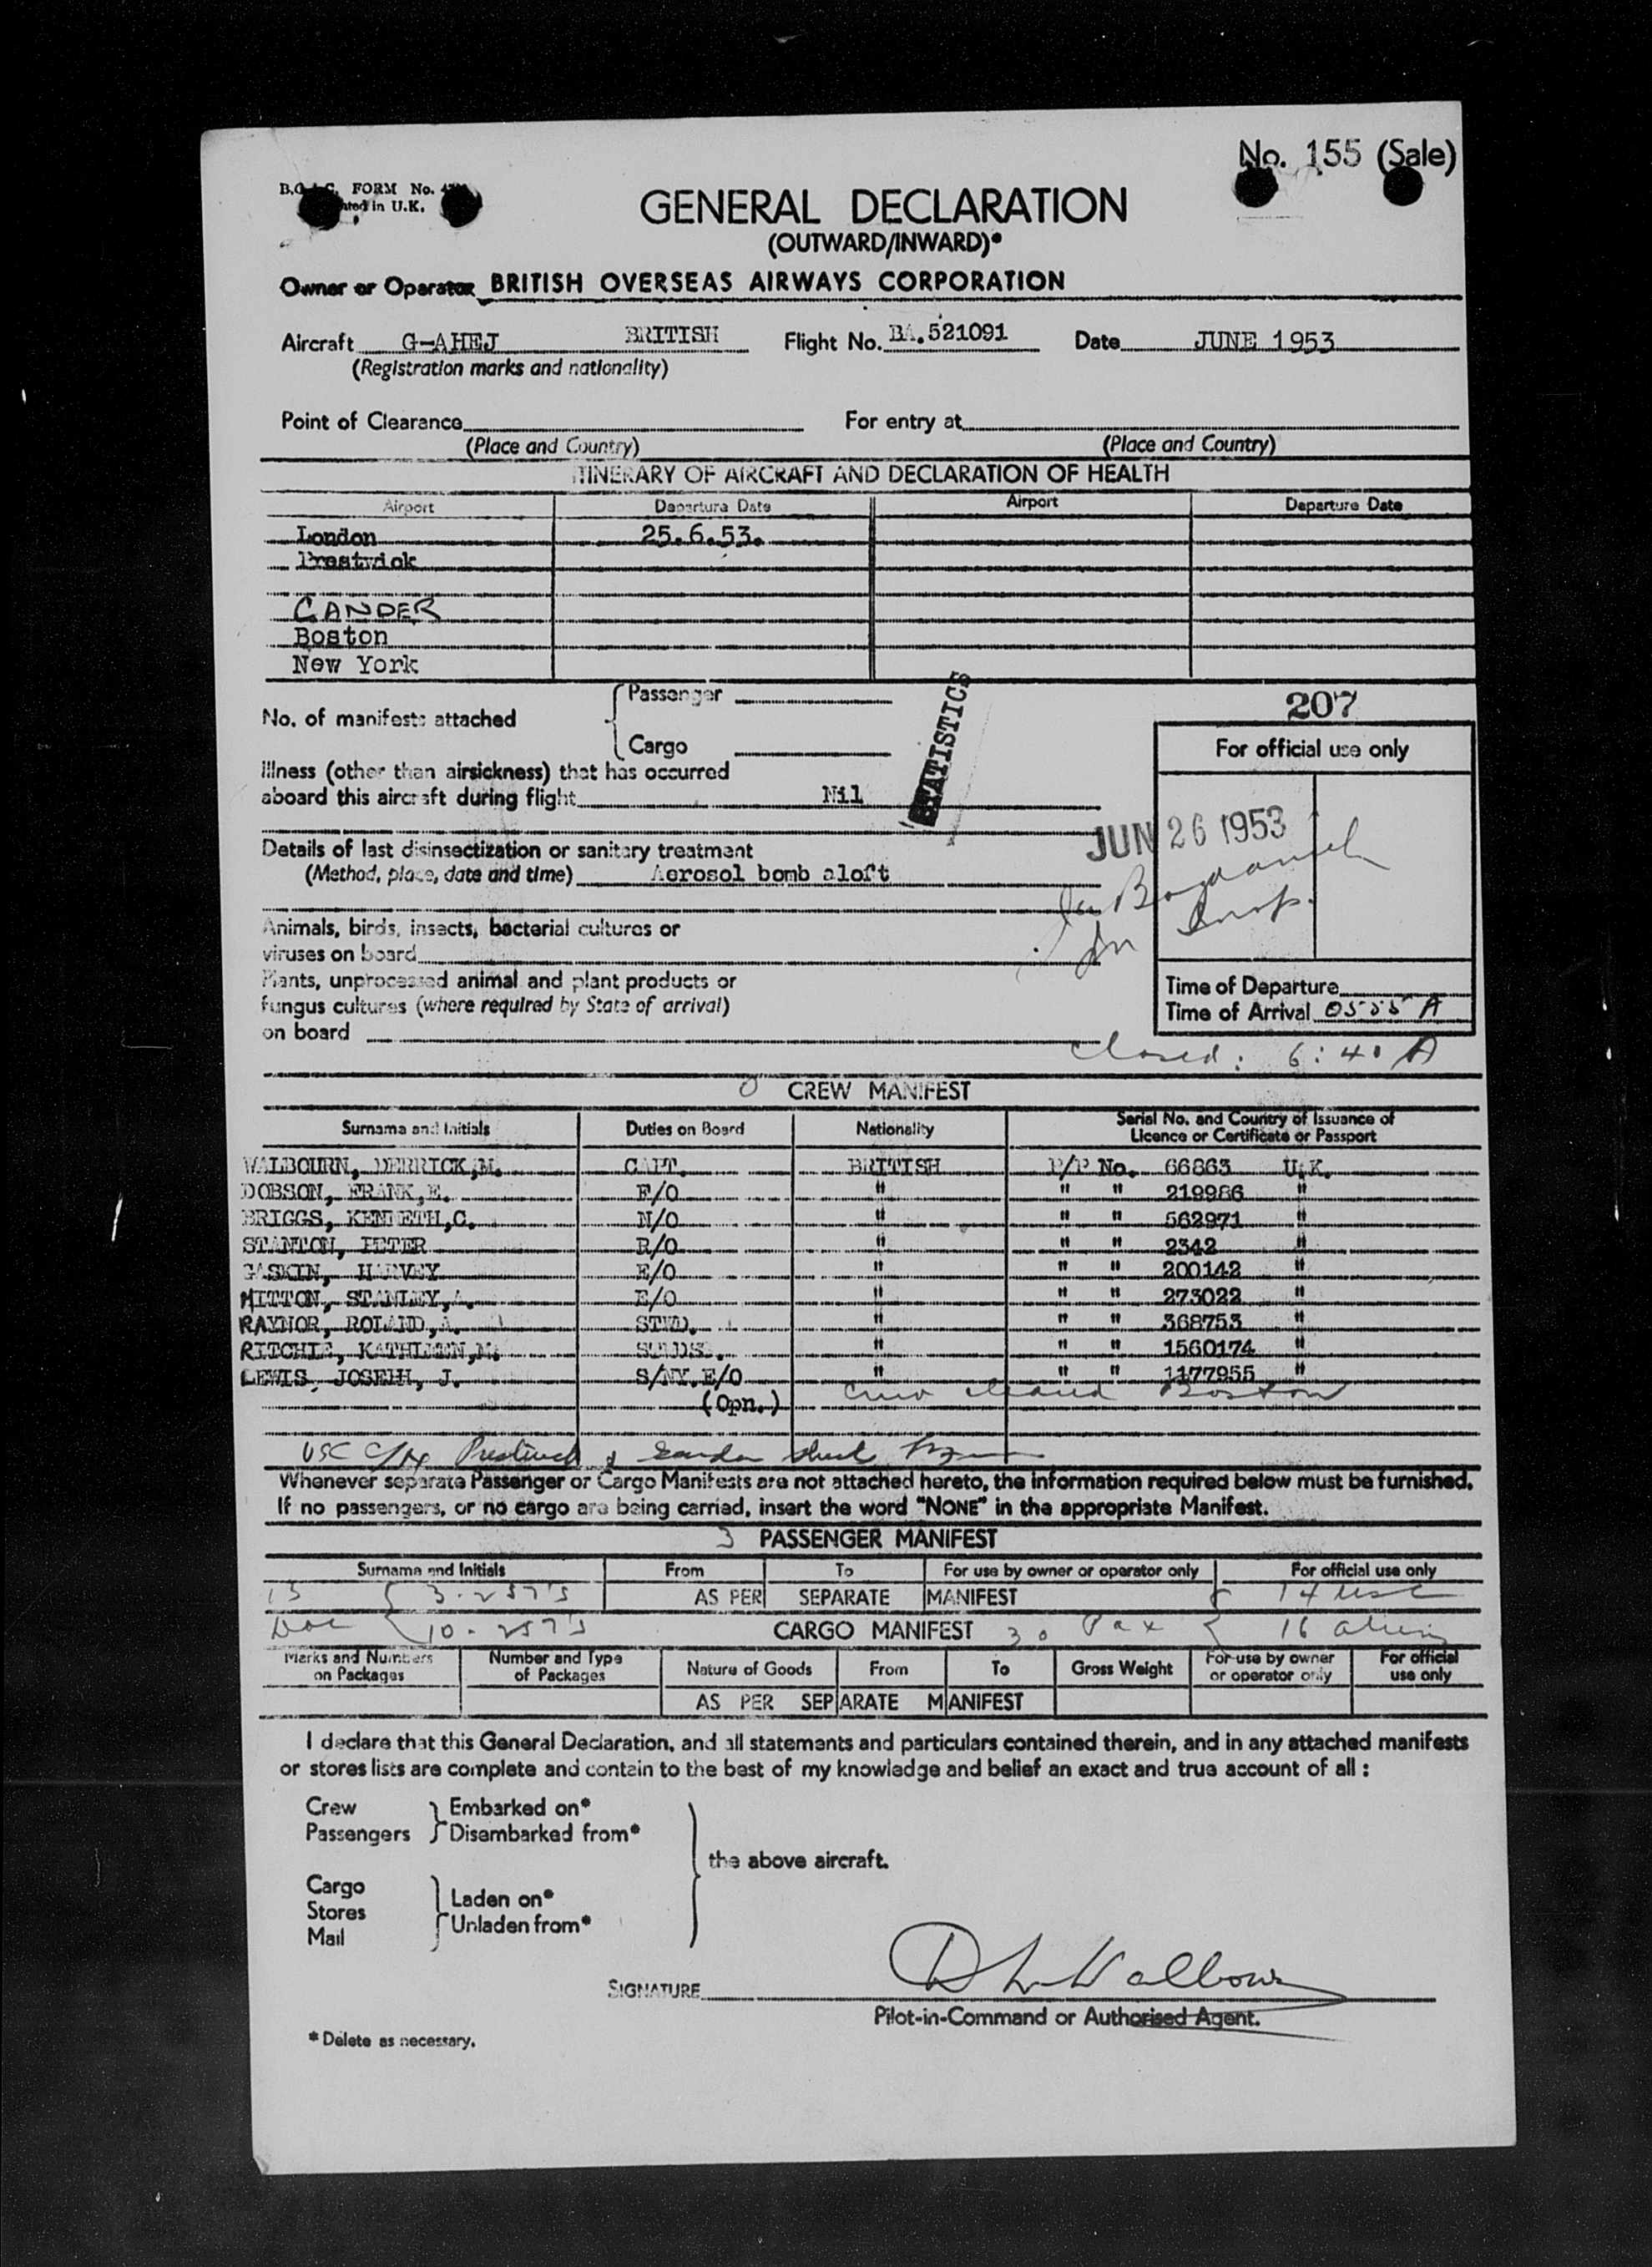 No. 155 (Sale)
FORM No.
in U.K.
GENERAL DECLARATION
(OUTWARD/INWARD)*
Owner or Operator BRITISH OVERSEAS AIRWAYS CORPORATION
Aircraft G-AHEJ BRITISH Flight No. BA.521091 Date JUNE 1953
(Registration marks and nationality)
Point of Clearance For entry at
(Place and Country) (Place and Country)
ITINERARY OF AIRCRAFT AND DECLARATION OF HEALTH
Airport Departure Date Airport Departure Date
London 25.6.53.
Prestwick
GANDER
Boston
New York
No. of manifests attached { Passenger
Cargo
STATISTICS
207
For official use only
Illness (other than airsickness) that has occurred
aboard this aircraft during flight Nil
JUN 26 1953
Details of last disinsectization or sanitary treatment
(Method, place, date and time) Aerosol bomb aloft
Animals, birds, insects, bacterial cultures or
viruses on board
Plants, unprocessed animal and plant products or
fungus cultures (where required by State of arrival)
on board
Time of Departure
Time of Arrival 0555 A
Closed: 6:40 A
CREW MANIFEST
Surname and Initials Duties on Board Nationality Serial No. and Country of Issuance of
Licence or Certificate or Passport
WALBOURN, DERRICK,M. CAPT. BRITISH P/P No. 66863 U.K.
DOBSON, FRANK,E. F/O " " " 219986 "
BRIGGS, KENNETH,C. N/O " " " 562971 "
STANTON, PETER R/O " " " 2342 "
GASKIN, HARVEY E/O " " " 200142 "
MITTON, STANLEY,A. E/O " " " 273022 "
RAYNOR, ROLAND,A. STWD. " " " 368753 "
RITCHIE, KATHLEEN,M. STWDS. " " " 1560174 "
LEWIS, JOSEPH, J. S/NY.E/O " " " 1177955 "
(Opn.) Crew cleared Boston
Whenever separate Passenger or Cargo Manifests are not attached hereto, the information required below must be furnished.
If no passengers, or no cargo are being carried, insert the word "NONE" in the appropriate Manifest.
3 PASSENGER MANIFEST
Surname and Initials From To For use by owner or operator only For official use only
13 { 3-257's AS PER SEPARATE MANIFEST { 14 USC
10-257's CARGO MANIFEST 30 Pax { 16 aliens
Marks and Numbers on Packages Number and Type of Packages Nature of Goods From To Gross Weight For use by owner or operator only For official use only
AS PER SEPARATE MANIFEST
I declare that this General Declaration, and all statements and particulars contained therein, and in any attached manifests
or stores lists are complete and contain to the best of my knowledge and belief an exact and true account of all :
Crew } Embarked on*
Passengers } Disembarked from*
the above aircraft.
Cargo
Stores } Laden on*
Mail } Unladen from*
SIGNATURE D M Walbourn
Pilot-in-Command or Authorised Agent.
* Delete as necessary.